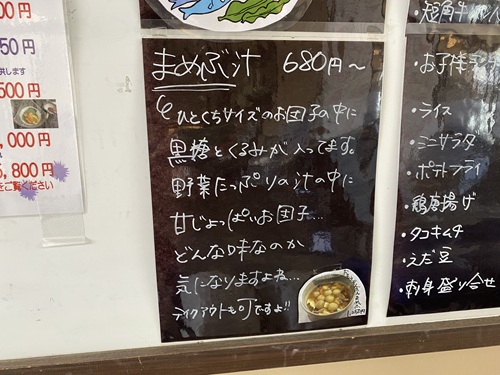 50円
50円
供します
500円
,000円
5,800円
をご覧ください
まめぶ汁 680円〜
ひとくちサイズのお団子の中に
黒糖とくるみが入ってます。
野菜たっぷりの汁の中に
甘じょっぱいお団子…
どんな味なのか
気になりますよね…
テイクアウトも可ですよ!!
・短角牛
・お子様
・ライス
・ミニサラダ
・ポテトフライ
・鶏唐揚げ
・タコキムチ
・えだ豆
・刺身盛り合せ